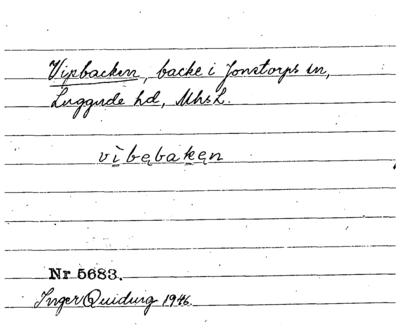 Vipbacken, backe i Jonstorps sn,
Luggude hd, Mhs L.
vìbębakęn
Nr 5683.
Inger Quiding 1946.